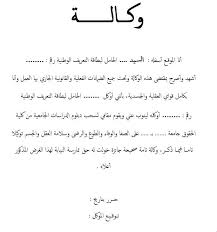 وكالـــة
أنا الموقع أسفله : السيد .... الحامل لبطاقة التعريف الوطنية رقم : ........
أشهد وأصرح بمقتضى هذه الوكالة وتحت جميع الضمانات الفعلية والقانونية الجاري بها العمل وأنا
بكامل قواي العقلية والجسدية، بأنني أوكل ........ الحامل لبطاقة التعريف الوطنية
رقم : ........ أوكله لينوب عني ويقوم مقامي لسحب دبلوم الدراسات الجامعية من كلية
الحقوق جامعة ..... على الصفا والوفاء والطوع والرضى وسلامة العقل والجسم توكيلا
تاما فيما ذكر، وكالة تامة صحيحة جائزة خولت له حق ممارسة النيابة لهذا الغرض المذكور
أعلاه .
حرر بتاريخ :
توقيع الموكل :